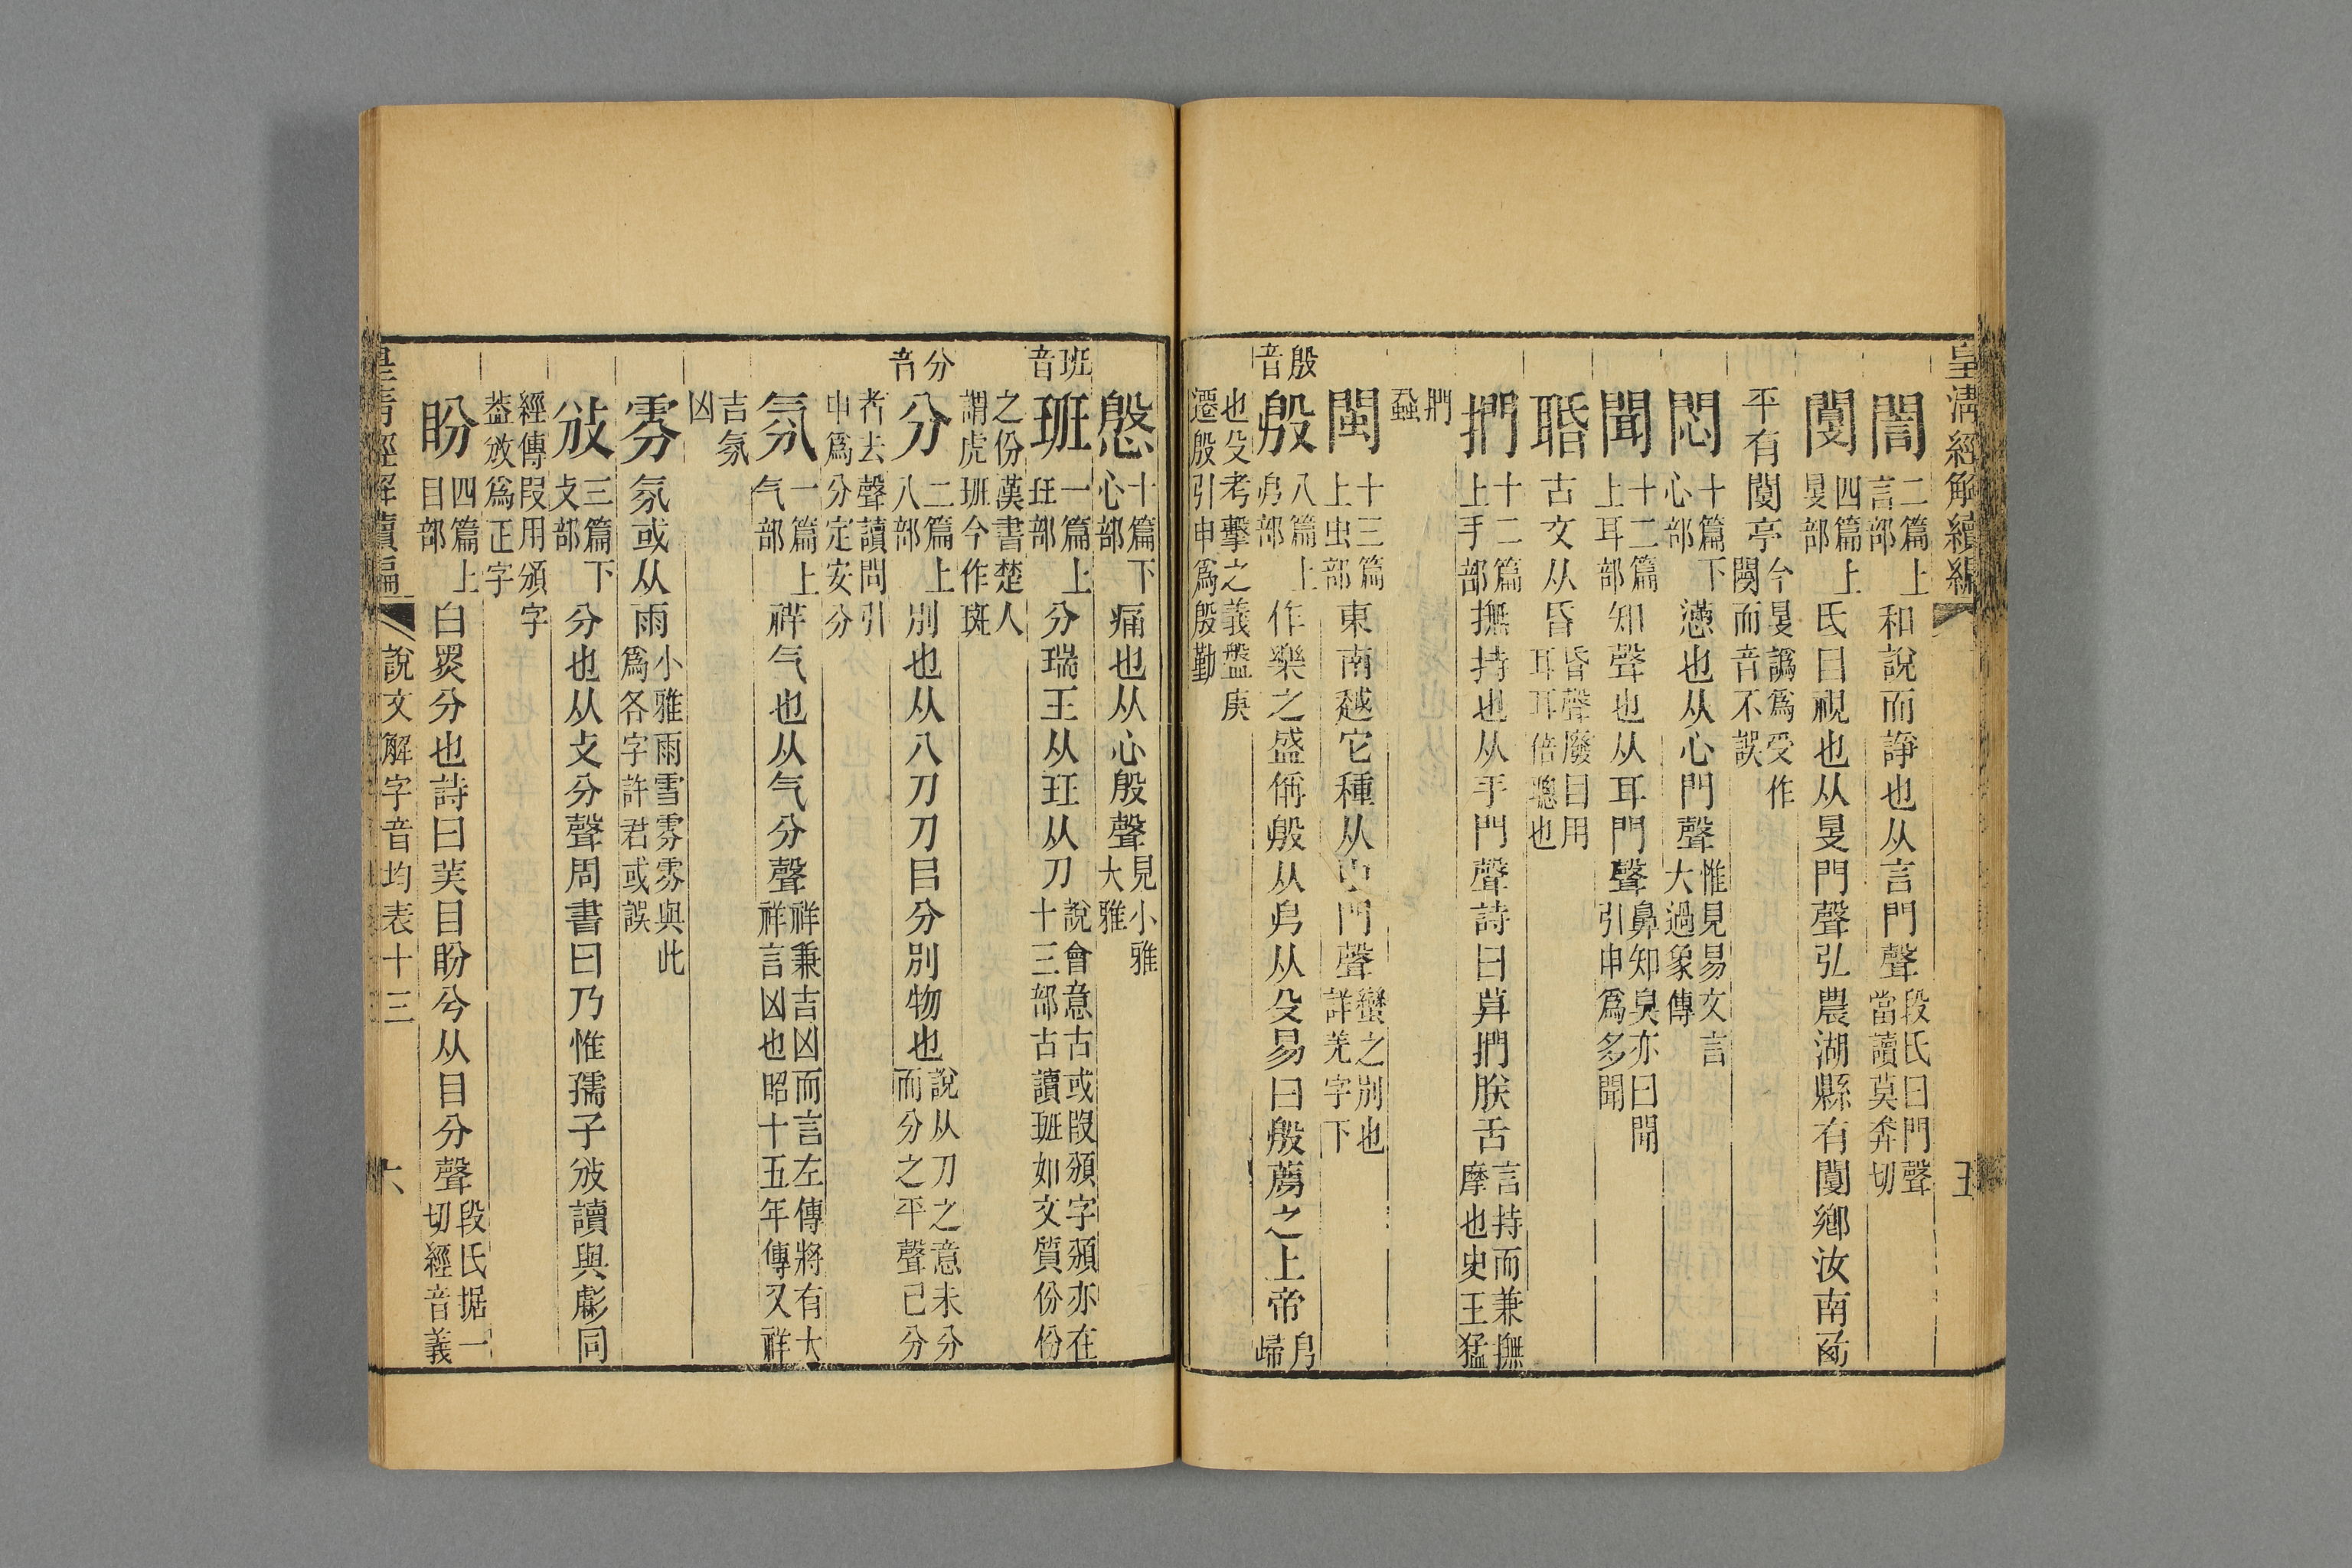 皇清經解續編
誾二篇上言部和說而諍也从言門聲段氏曰門聲當讀莫奔切
閺四篇上𡕥部氐目視也从𡕥門聲弘農湖縣有閺鄉汝南西
平有閺亭今𡕥譌爲受作閿而音不誤
悶十篇下心部懣也从心門聲惟見易文言大過象傳
聞十二篇上耳部知聲也从耳門聲鼻知臭亦曰聞引申爲多聞
䎽古文从昏昏聲廢目用耳耳倍聰也
捫十二篇上手部撫持也从手門聲詩曰莫捫朕舌言持而兼撫摩也史王猛
捫蝨
閩十三篇上虫部東南越它種从虫門聲蠻之別也詳羌字下
殷音
殷八篇上㐆部作樂之盛偁殷从㐆从殳易曰殷薦之上帝㐆歸
也殳考擊之義盤庚遷殷引申爲殷勤
慇十篇下心部痛也从心殷聲見小雅大雅
班音
班一篇上玨部分瑞王从玨从刀說會意古或叚頒字頒亦在十三部古讀班如文質份份
之份漢書楚人謂虎班今作斑
分音
分二篇上八部別也从八刀刀㠯分別物也說从刀之意未分而分之平聲已分
者去聲讀問引申爲分定安分
氛一篇上气部祥气也从气分聲祥兼吉凶而言左傳將有大祥言凶也昭十五年傳又祥
吉氛凶
雰氛或从雨小雅雨雪雰雰與此爲各字許君或誤
攽三篇下攴部分也从攴分聲周書曰乃惟孺子攽讀與虨同
經傳叚用頒字葢攽爲正字
盼四篇上目部白黑分也詩曰美目盼兮从目分聲段氏据一切經音義
皇清經解續編
說文解字音均表十三
六